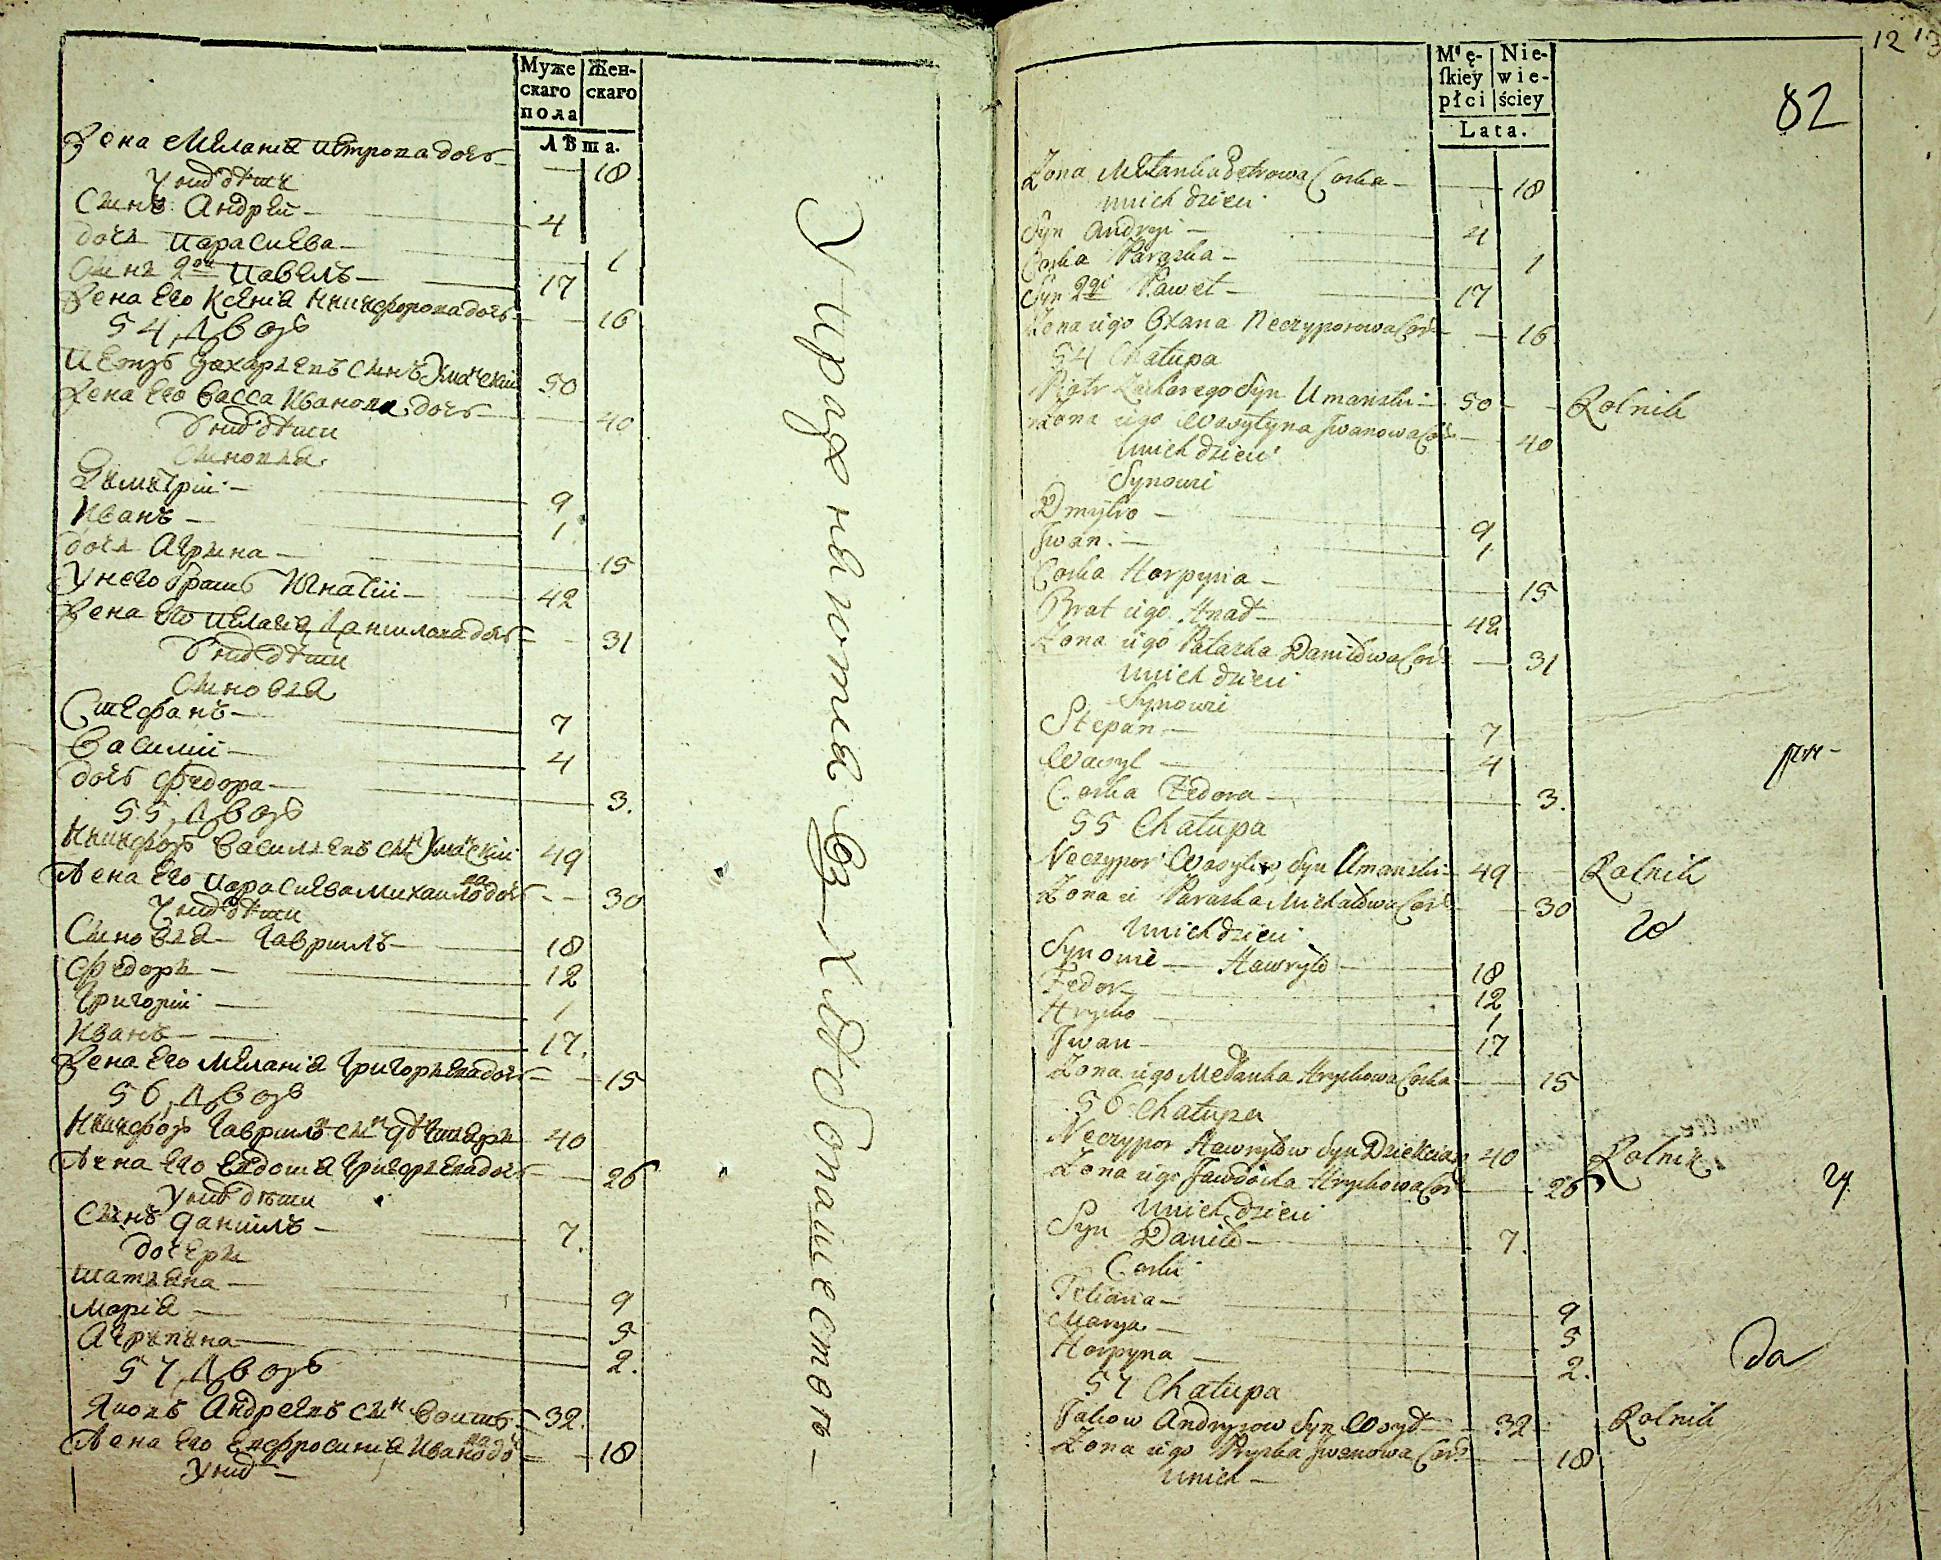 Муже
скаго
пола
Жен-
скаго
Лѣта.
Жена Мелания Петрова дочь — 18
У нихъ дѣти
Сынъ Андрей — 4
дочь Парасиева — 1
Сынъ 2ой Павелъ — 17
Жена Его Ксения Никифорова дочь — 16
54 Дворъ
Петръ Захариевъ сынъ Уманский 50
Жена Его Васса Иванова дочь — 40
У нихъ дѣти
Сыновья
Димитрий — 9
Иванъ — 1
дочь Агрипина — 15
У него братъ Игнатий — 42
Жена Его Пелагия Данилова дочь — 31
У нихъ дѣти
Сыновья
Стефанъ — 7
Василий — 4
дочь Федора — 3.
55 Дворъ
Никифоръ Василиевъ сынъ Уманский 49
Жена Его Парасиева Михайлова дочь — 30
У нихъ дѣти
Сыновья — Гавриилъ — 18
Федоръ — 12
Григорий — 1
Иванъ — 17.
Жена Его Мелания Григориева дочь — 15
56 Дворъ
Никифоръ Гавриловъ сынъ 40
Жена Его Евдокия Григориева дочь — 26
У нихъ дѣти
Сынъ Даниилъ — 7.
дочери
Татияна — 9
Мария — 5
Агрипина — 2.
57 Дворъ
Яковъ Андреевъ сынъ Войтъ — 32.
Жена Его Евфросиния Иванова до — 18
У нихъ —
Упражняются Въ Хлѣбопашествѣ —
12 13
82
Mę-
ſkiey
płci
Nie-
wie-
ściey
Lata.
Zona Mełanka Petrowa Corka — 18
unich dzieci
Syn Andryi — 4
Corka Paraska — 1
Syn 2gi Paweł — 17
Zona iego Oxana Neczyporowa Cor — 16
54 Chałupa
Piotr Zacharego Syn Umanski — 50 — Rolnik
Zona iego Wasylyna Jwanowa Cor — 40
unich dzieci
Synowie
Dmytro — 9
Jwan — 1
Corka Horpyna — 15
Brat iego Hnat — 42
Zona iego Palazka Daniłowa Cor — 31
unich dzieci
Synowie
Stepan — 7
Wasyl — 4
Corka Fedora — 3.
55 Chałupa
Neczypor Wasylow Syn Umanski — 49 — Rolnik
Zona ie Paraska Michałowa Cor — 30
unich dzieci
Synowie — Hawryło — 18
Fedor — 12
Hryćko — 1
Jwan — 17
Zona iego Mełanka Hryćkowa Corka — 15
56 Chałupa
Neczypor Hawryłow Syn 40 Rolnik
Zona iego Jawdocka Hryćkowa Cor — 26
unich dzieci
Syn Daniło — 7.
Corki
Tetiana — 9
Marya — 5
Horpyna — 2.
57 Chałupa
Jakow Andryiow Syn Woyt — 32 — Rolnik
Zona iego Pryska Jwanowa Cor — 18
unich —